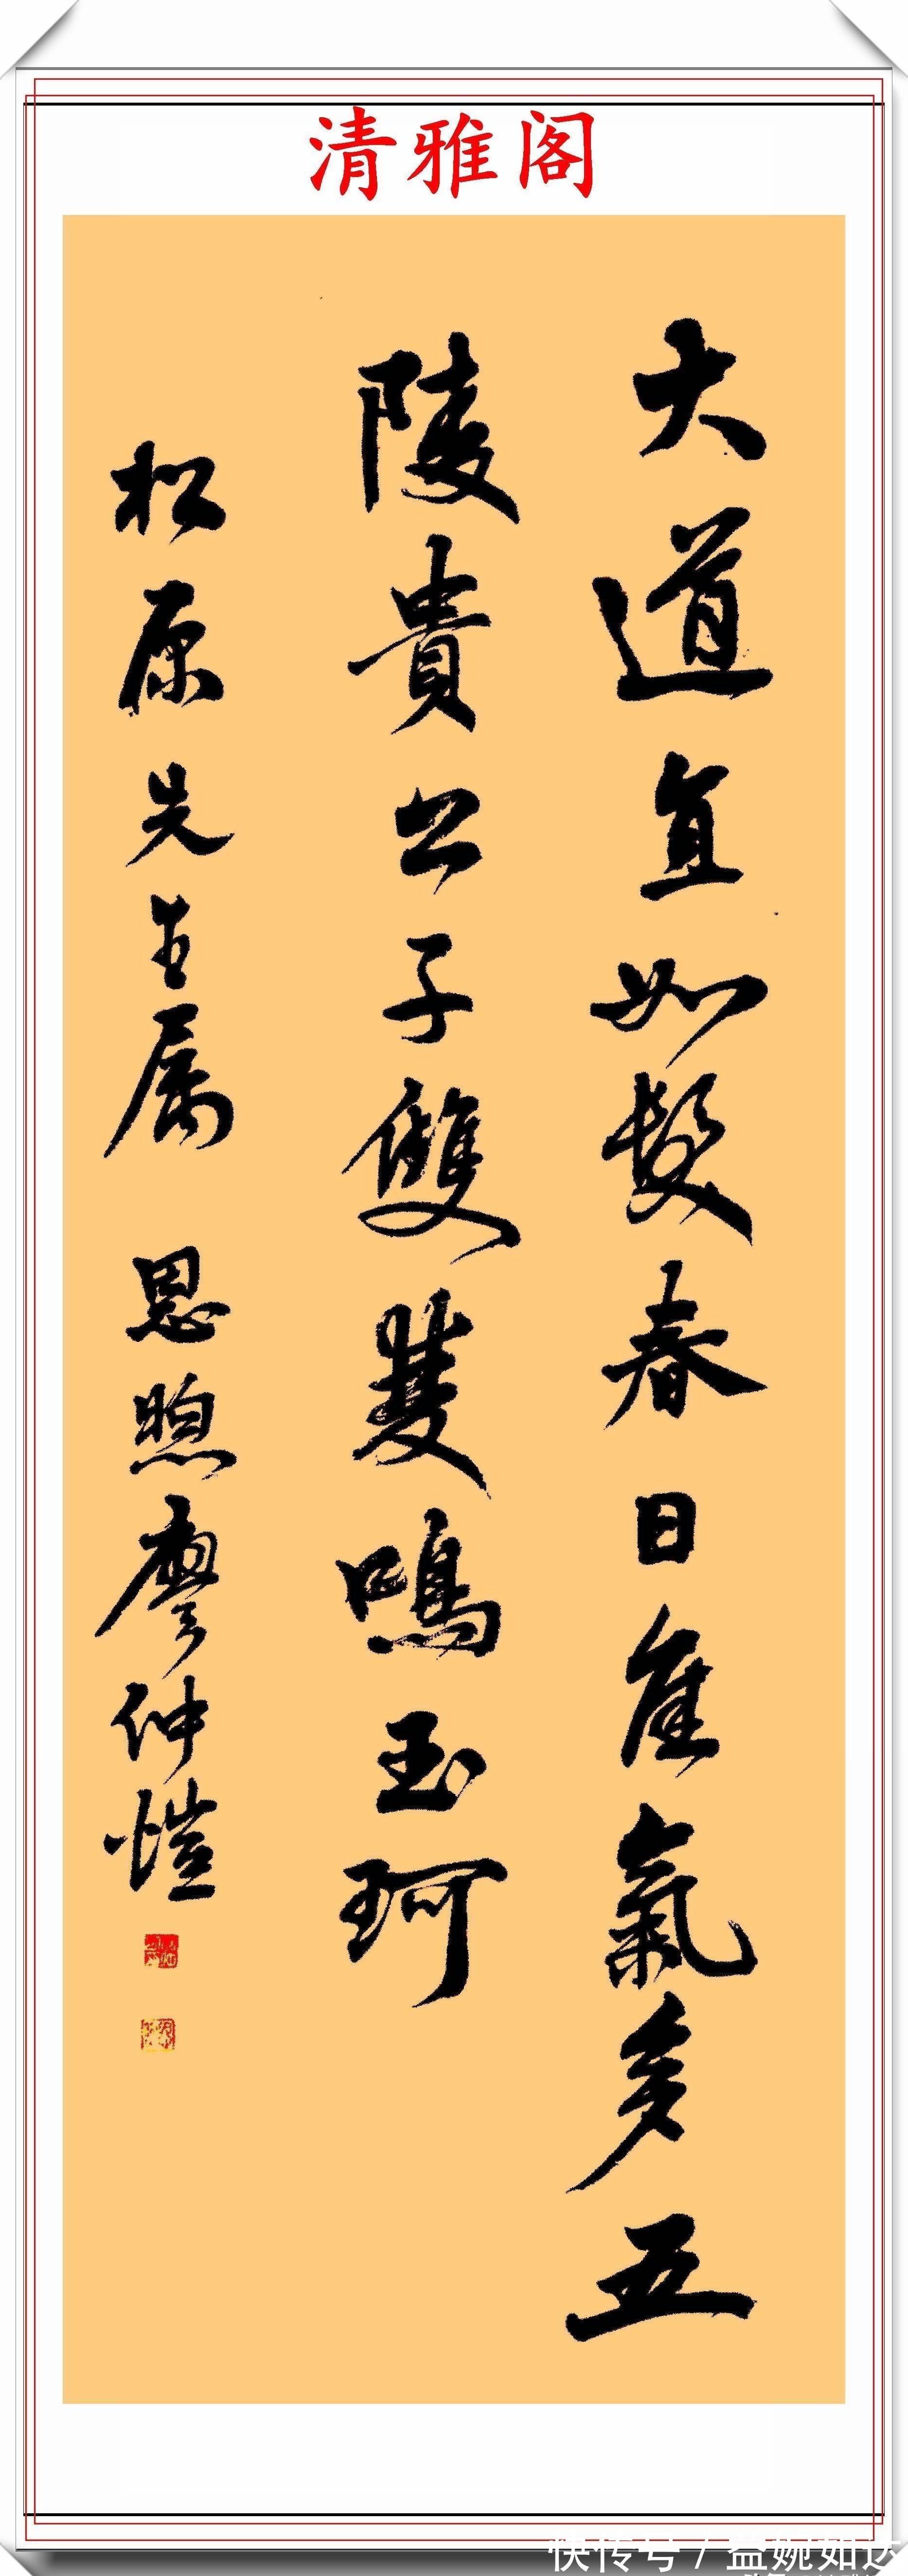 清雅阁
大道直如髮春日佳氣多五
陵貴公子雙雙鳴玉珂
松原先生属 恩煦廖仲愷
快传号 / 益婉如达